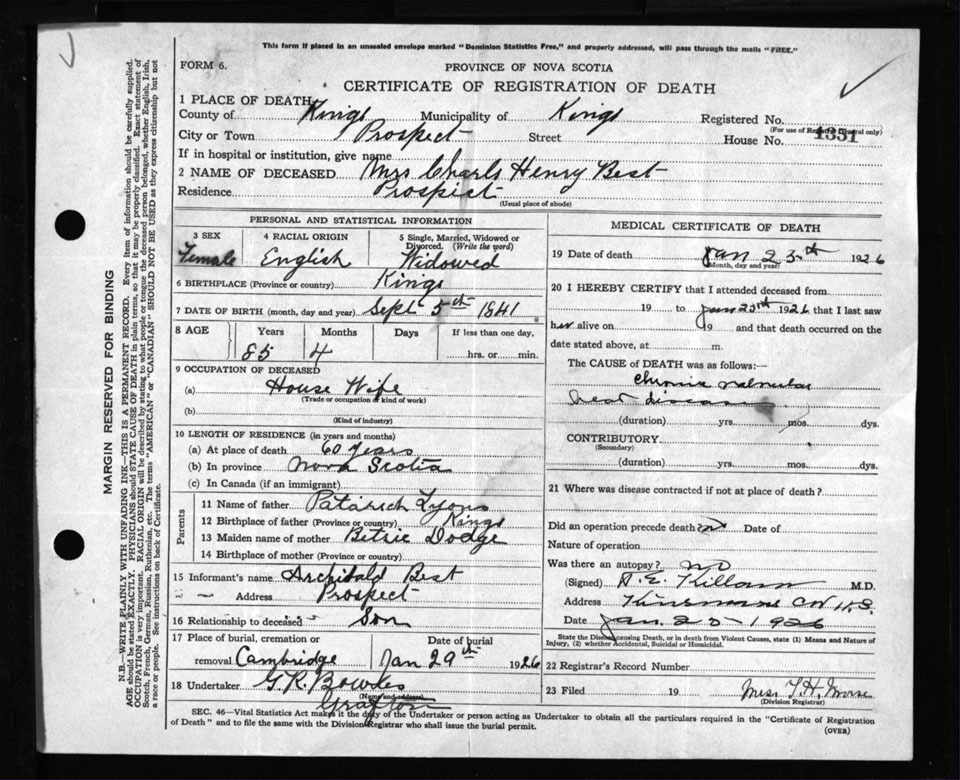 This form if placed in an unsealed envelope marked "Dominion Statistics Free," and properly addressed, will pass through the mails "FREE."
FORM 6.
PROVINCE OF NOVA SCOTIA
CERTIFICATE OF REGISTRATION OF DEATH
1 PLACE OF DEATH
County of Kings Municipality of Kings Registered No.
(For use of Registrar General only)
1351
City or Town Prospect Street House No.
If in hospital or institution, give name
2 NAME OF DECEASED Mrs Charls Henry Best
Residence Prospect
(Usual place of abode)
PERSONAL AND STATISTICAL INFORMATION
3 SEX 4 RACIAL ORIGIN 5 Single, Married, Widowed or Divorced. (Write the word)
Female English Widowed
6 BIRTHPLACE (Province or country) Kings
7 DATE OF BIRTH (month, day and year) Sept 5th 1841
8 AGE Years Months Days If less than one day,
85 4 hrs. or min.
9 OCCUPATION OF DECEASED
(a) House Wife
(Trade or occupation or kind of work)
(b)
(Kind of industry)
10 LENGTH OF RESIDENCE (in years and months)
(a) At place of death 60 years
(b) In province Nova Scotia
(c) In Canada (if an immigrant)
Parents
11 Name of father Lyons
12 Birthplace of father (Province or country) Kings
13 Maiden name of mother Betsie Dodge
14 Birthplace of mother (Province or country)
15 Informant's name Archibald Best
Address Prospect
16 Relationship to deceased Son
17 Place of burial, cremation or removal Cambridge
Date of burial Jan 29th 1926
18 Undertaker G. R. Bowles
(Name and address)
Grafton
MEDICAL CERTIFICATE OF DEATH
19 Date of death Jan 25th 1926
(Month, day and year)
20 I HEREBY CERTIFY that I attended deceased from
19 to Jan 25th 1926 that I last saw
her alive on 19 and that death occurred on the
date stated above, at m.
The CAUSE of DEATH was as follows:—
chronic valvular
heart disease
(duration) yrs. mos. dys.
CONTRIBUTORY
(Secondary)
(duration) yrs. mos. dys.
21 Where was disease contracted if not at place of death?
Did an operation precede death? no Date of
Nature of operation
Was there an autopsy? no
(Signed) Killam M.D.
Address N.S.
Date Jan. 25 - 1926
State the Disease causing Death, or in death from Violent Causes, state (1) Means and Nature of Injury, (2) whether Accidental, Suicidal or Homicidal.
22 Registrar's Record Number
23 Filed 19 Morse
(Division Registrar)
SEC. 46—Vital Statistics Act makes it the duty of the Undertaker or person acting as Undertaker to obtain all the particulars required in the "Certificate of Registration
of Death" and to file the same with the Division Registrar who shall issue the burial permit.
(OVER)
MARGIN RESERVED FOR BINDING
N.B.—WRITE PLAINLY WITH UNFADING INK—THIS IS A PERMANENT RECORD. Every item of information should be carefully supplied.
AGE should be stated EXACTLY. PHYSICIANS should STATE CAUSE OF DEATH in plain terms, so that it may be properly classified. Exact statement of
OCCUPATION is very important. RACIAL ORIGIN will be described by stating to what people or tongue the deceased person belonged, whether English, Irish,
Scotch, French, German, Russian, Ruthenian, etc. The terms "AMERICAN" or "CANADIAN" SHOULD NOT BE USED as they express citizenship but not
a race or people. See instructions on back of Certificate.